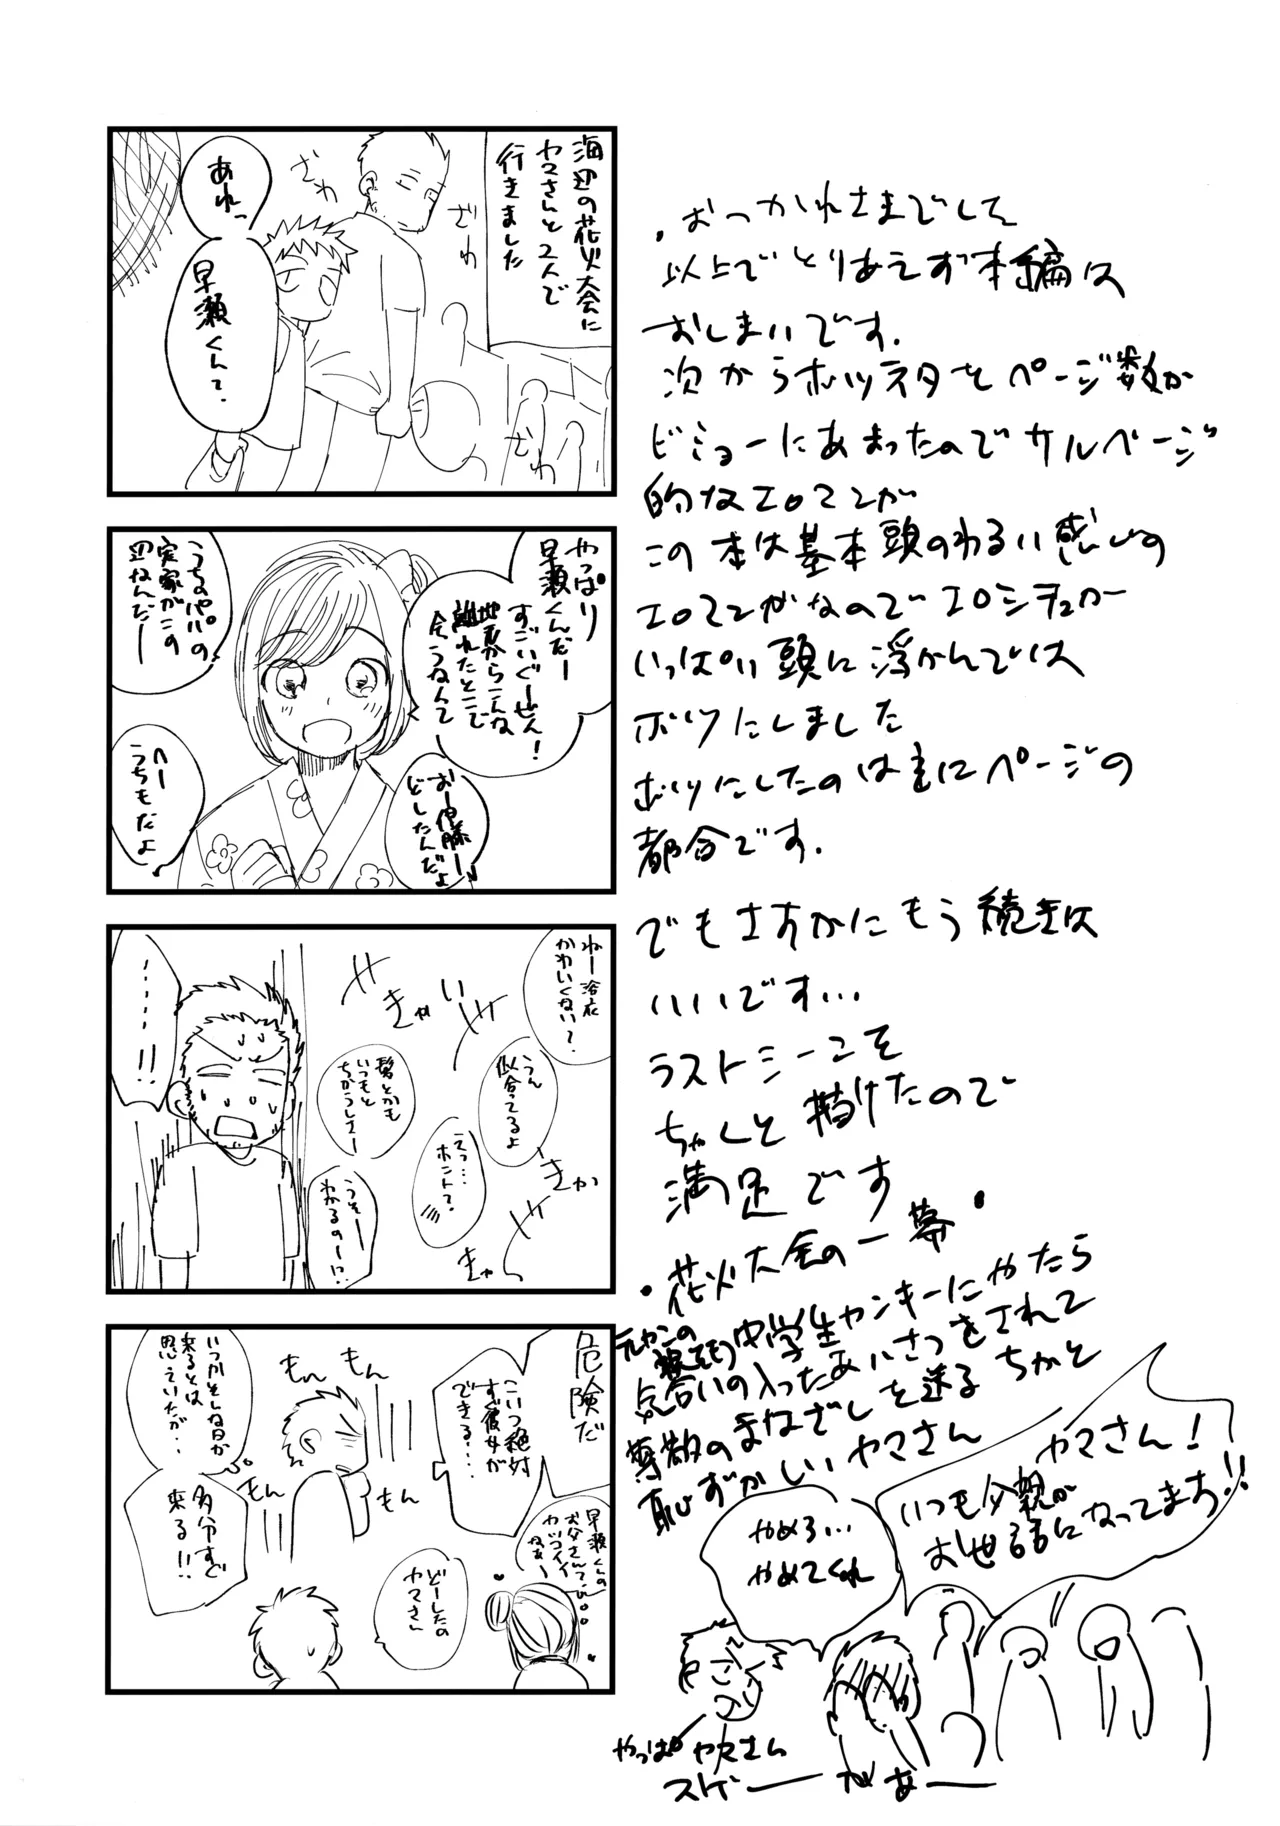 海辺の花火大会に
ヤマさんと2人で
行きました
ざわ
ざわ
ざわ
あれっ
早瀬くんて.
やっぱり
早瀬くんだー
すごいぐーぜん!
地元からこんな
離れたとこで
会うなんて
うちのパパの
実家がこの
辺なんだー
おー伊藤ー
どしたんだよ
へー
うちもだよ
ねー浴衣
かわいくない?
うん
似合ってるよ
髪とかも
いつもと
ちがうしさー
えっ…
ホント?
うそー
わかるのー!?
きゃい
きゃ
きゃ
……!!
危険だ
こいつ絶対
すぐ彼女が
できる…
もん
もん
もん
もん
いつかそんな日が
来るとは
思っていたが..
多分すぐ
来る!!
早瀬くんの
お父さんて
カッコイイ
なぁー
どーしたの
ヤマさん
・おつかれさまでした
以上でとりあえず本編は
おしまいです.
次からボツネタをページ数が
ビミョーにあまったのでサルベージ
的なエロマンが
この本は基本頭のわるい感じの
エロマンがなのでエロシチュが
いっぱい頭に浮かんでは
ボツにしました
ボツにしたのは主にページの
都合です.
でもさすがにもう続きは
いいです…
ラストシーンを
ちゃんと描けたので
満足です
・花火大会の一幕・
元ヤンの
中学生ヤンキーにやたら
気合いの入ったあいさつをされて
尊敬のまなざしを送るちかと
恥ずかしいヤマさん
ヤマさん!
いつも父親が
お世話になってます!!
やめろ…
やめてくれ
やっぱヤマさん
スゲーなあー